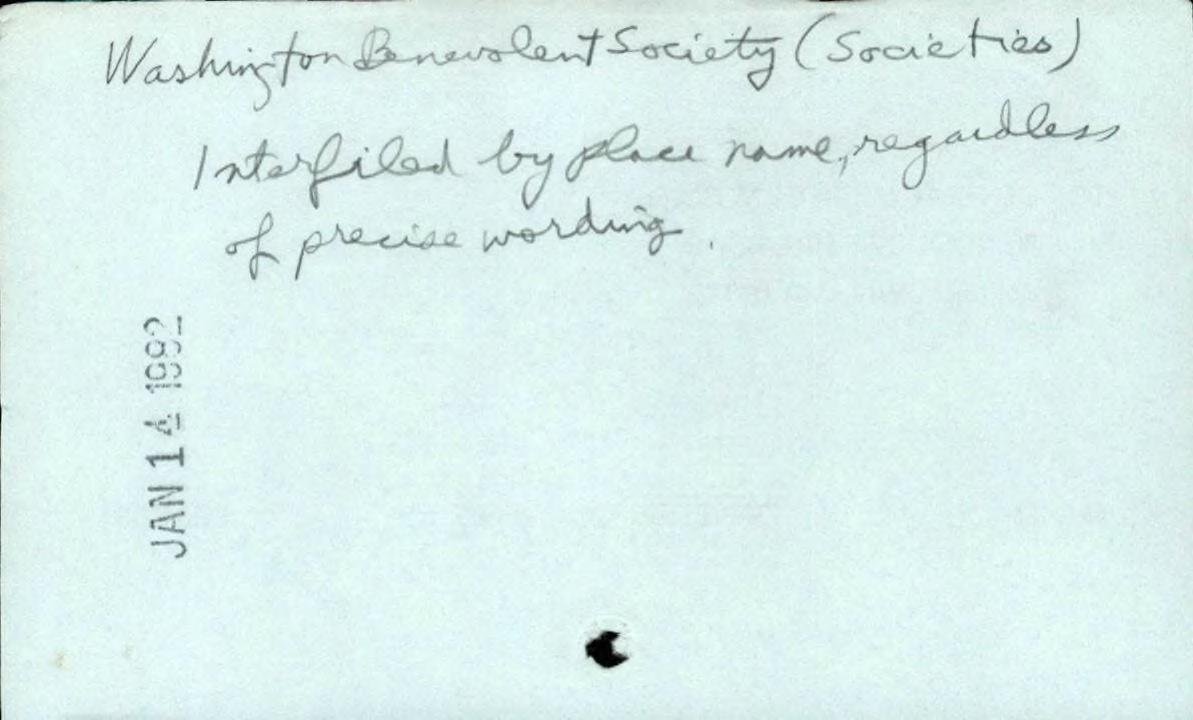 Washington Benevolent Society (Societies)
Interfiled by place name, regardless
of precise wording.
JAN 14 1992